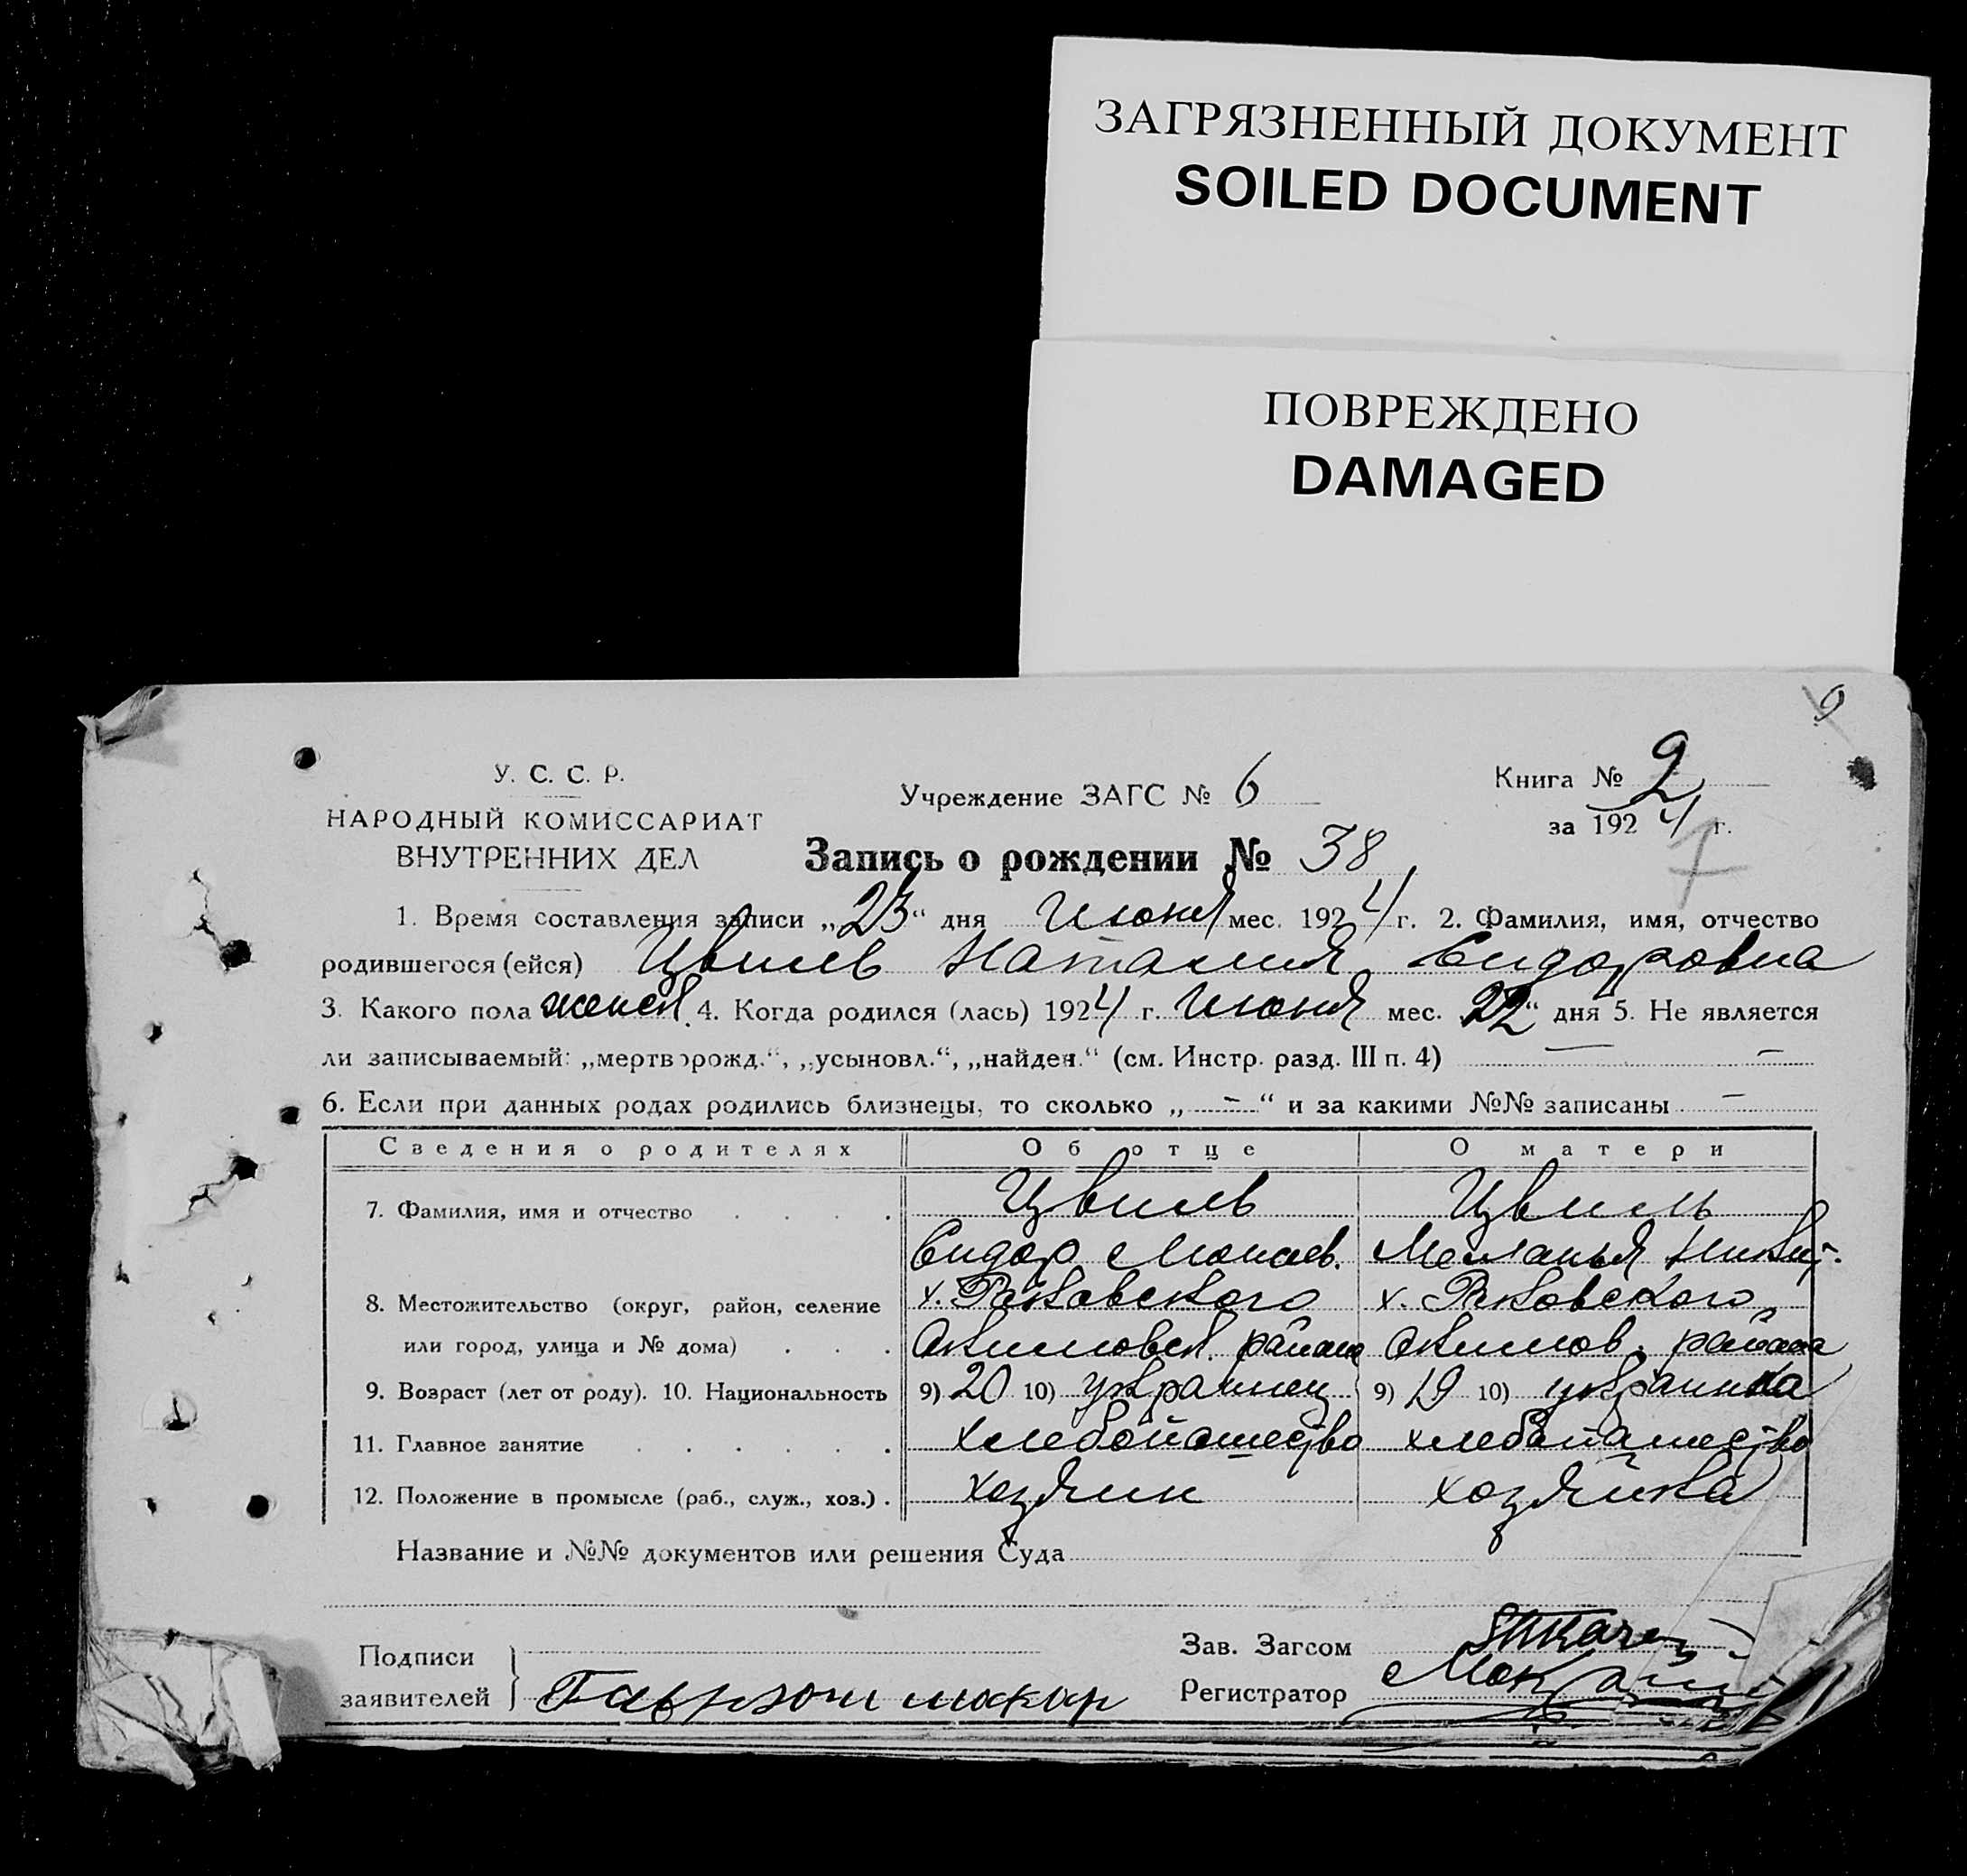 ЗАГРЯЗНЕННЫЙ ДОКУМЕНТ
SOILED DOCUMENT
ПОВРЕЖДЕНО
DAMAGED
9
У. С. С. Р.
НАРОДНЫЙ КОМИССАРИАТ
ВНУТРЕННИХ ДЕЛ
Учреждение ЗАГС № 6
Книга № 2
за 1924 г.
7
Запись о рождении № 38
1. Время составления записи „23“ дня Июня мес. 1924 г. 2. Фамилия, имя, отчество
родившегося (ейся) Цвилев Наталия Сидоровна
3. Какого пола женск. 4. Когда родился (лась) 1924 г. Июня мес. 22“ дня 5. Не является
ли записываемый: „мертворожд.“, „усыновл.“, „найден.“ (см. Инстр. разд. III п. 4) — —
6. Если при данных родах родились близнецы, то сколько „ - “ и за какими №№ записаны —
Сведения о родителях Об отце О матери
7. Фамилия, имя и отчество Цвилев Цвиль
Сидор Меланья
8. Местожительство (округ, район, селение х. Раковского х. Раковского
или город, улица и № дома) Акимовск. района Акимов. района
9. Возраст (лет от роду). 10. Национальность 9) 20 10) украинец 9) 19 10) украинка
11. Главное занятие хлебопашество хлебопашество
12. Положение в промысле (раб., служ., хоз.) хозяин хозяйка
Название и №№ документов или решения Суда
Подписи
заявителей
Зав. Загсом
Регистратор